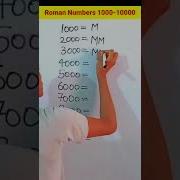 Roman Numbers 1000-10000
1000 = M
2000 = MM
3000 = M
4000 =
5000 =
6000 =
7000 =